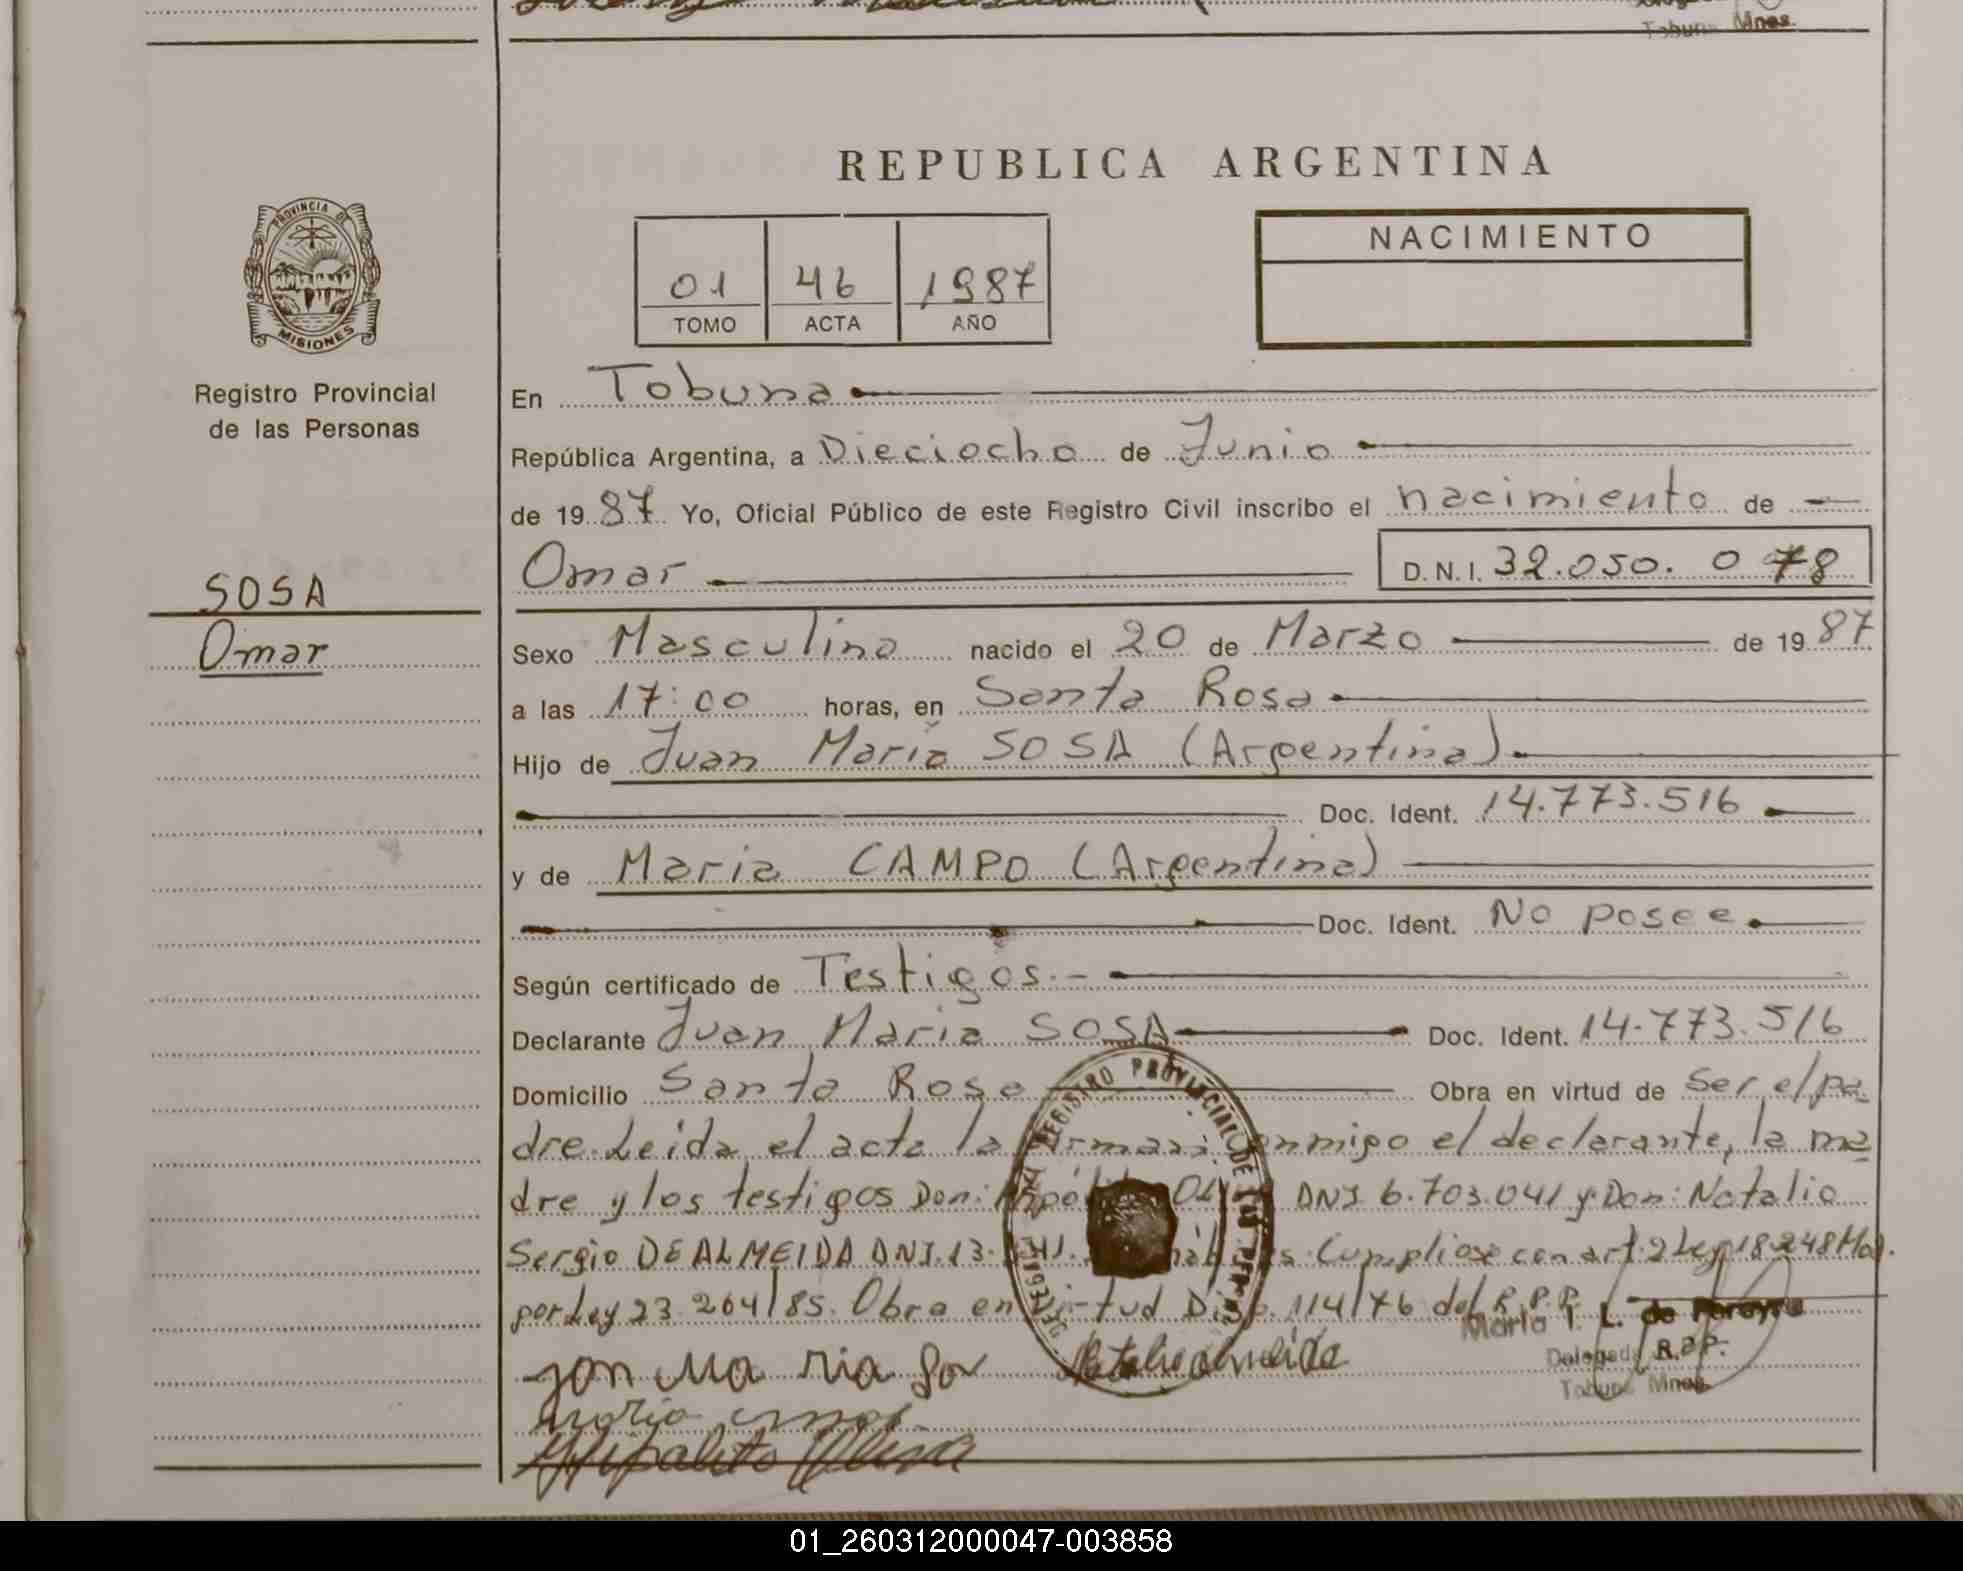 Tobuna Mnes.
REPUBLICA ARGENTINA
PROVINCIA DE
MISIONES
Registro Provincial
de las Personas
01 46 1987
TOMO ACTA AÑO
NACIMIENTO
En Tobuna
República Argentina, a Dieciocho de Junio
de 1987 Yo, Oficial Público de este Registro Civil inscribo el nacimiento de
SOSA
Omar
Omar D.N.I. 32.050.078
Sexo Masculino nacido el 20 de Marzo de 1987
a las 17:00 horas, en Santa Rosa
Hijo de Juan Maria SOSA (Argentina)
Doc. Ident. 14.773.516
y de Maria CAMPO (Argentina)
Doc. Ident. No posee
Según certificado de Testigos.-
Declarante Juan Maria SOSA Doc. Ident. 14.773.516
Domicilio Santa Rosa Obra en virtud de Ser el pa
dre. Leida el acta la conmigo el declarante, la ma
dre y los testigos Don: DNI 6.703.041 y Don: Natalio
Sergio DE ALMEIDA DNI. 13. Cumpliose con art. 2 Ley 18.248 Mod.
por Ley 23.264/85. Obra en virtud Disp. 114/76 del R.P.P.
REGISTRO PROVINCIAL DE LAS PERSONAS
Maria T. L. de Pereyra
Delegada R.P.P.
Tobuna Mnes.
Juan Ma ria Sos
Natalio almeida
maria
Hipolito Olivera
01_260312000047-003858